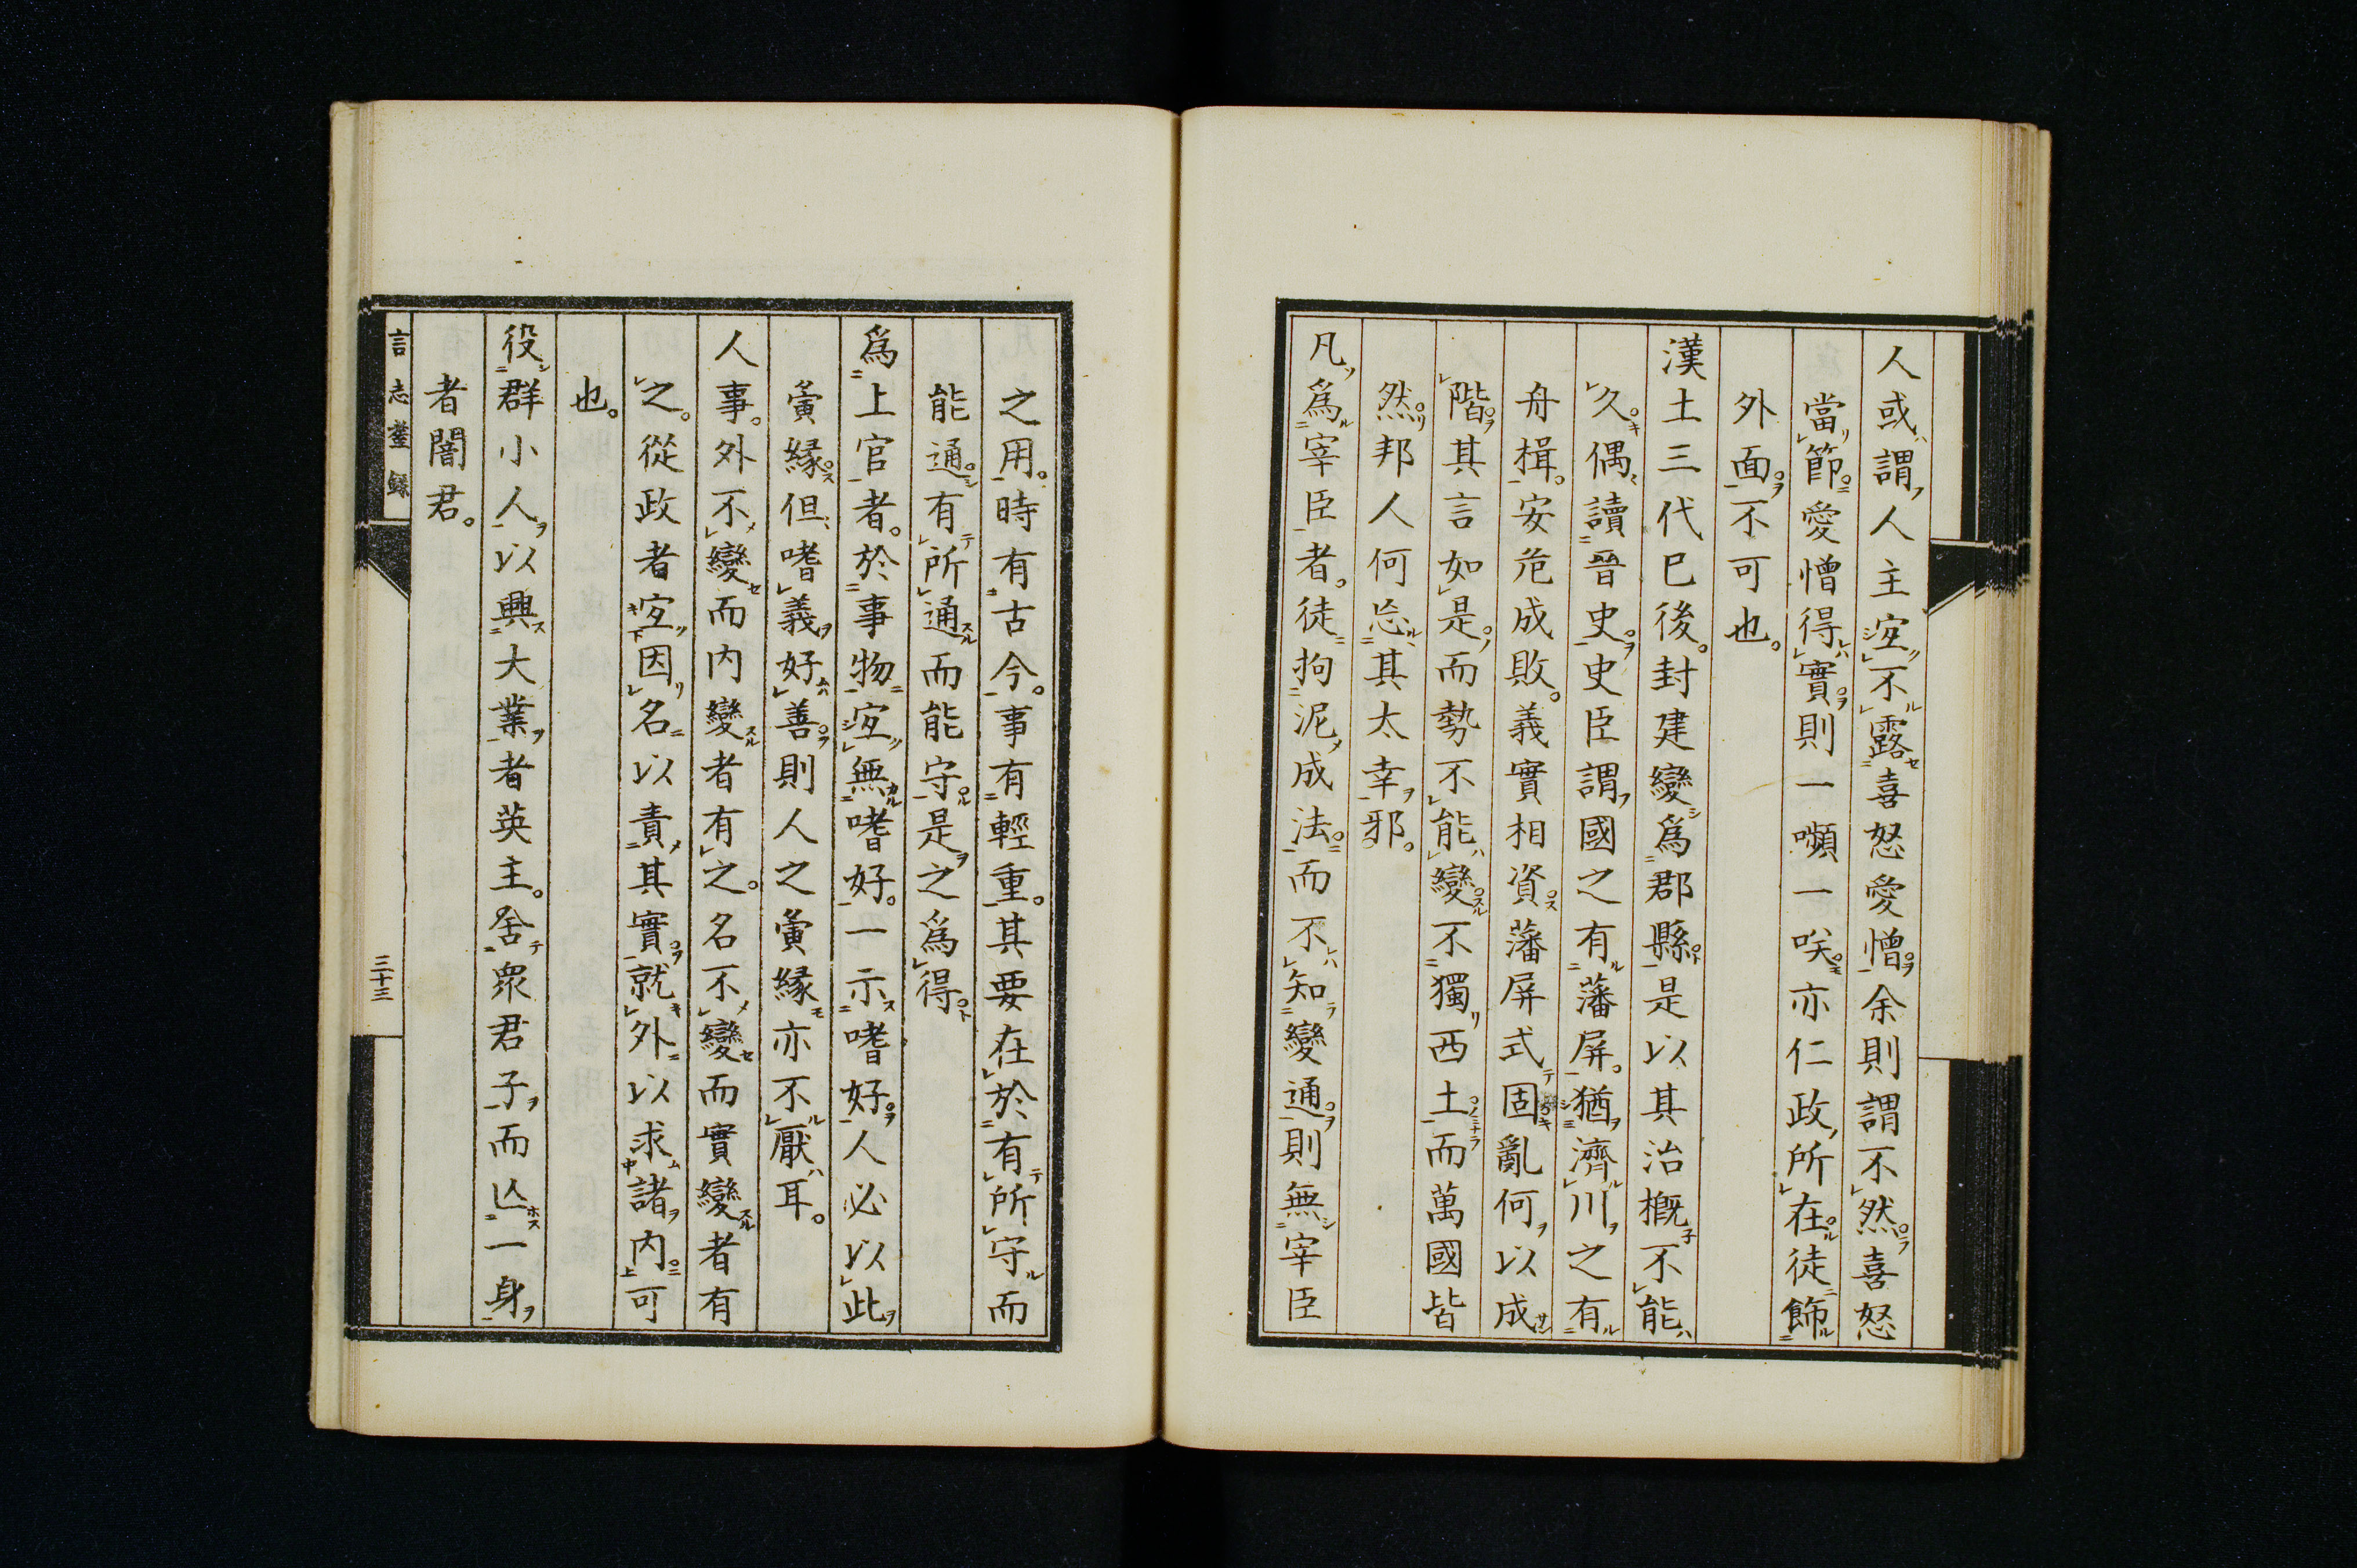 人或謂人主宜不露喜怒愛憎余則謂不然喜怒
當節愛憎得實則一嚬一咲亦仁政所在徒飾
外面不可也。
漢土三代已後。封建變爲郡縣是以其治概不能
久偶讀晉史史臣謂國之有藩屏。猶濟川之有
舟楫。安危成敗。義實相資藩屏式固亂何以成
階其言如是而勢不能變不獨西土而萬國皆
然邦人何忘其太幸邪。
凡爲宰臣者。徒拘泥成法而不知變通則無宰臣
之用。時有古今。事有輕重。其要在於有所守而
能通有所通而能守是之爲得
爲上官者。於事物宜無嗜好。一示嗜好人必以此
夤縁但嗜義好善則人之夤縁亦不厭耳。
人事。外不變而内變者有之。名不變而實變者有
之。從政者宜因名以責其實就外以求諸内可
也。
役群小人以興大業者英主。舍衆君子而亾一身
者闇君。
言志耋録
三十三